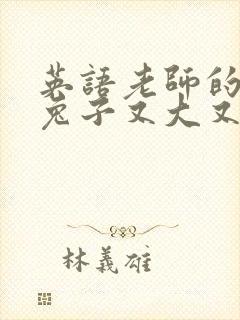 英語老師的
兔子又大又
林義雄